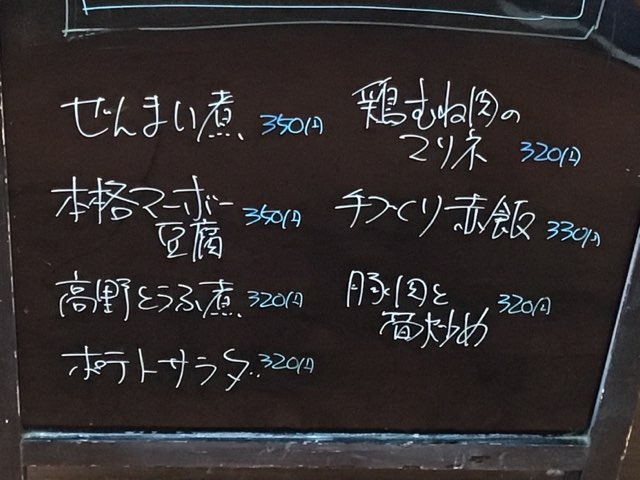 ぜんまい煮 350円
本格マーボー
豆腐 350円
高野とうふ煮 320円
ポテトサラダ 320円
鶏むね肉の
マリネ 320円
手づくり赤飯 330円
豚肉と
炒め 320円